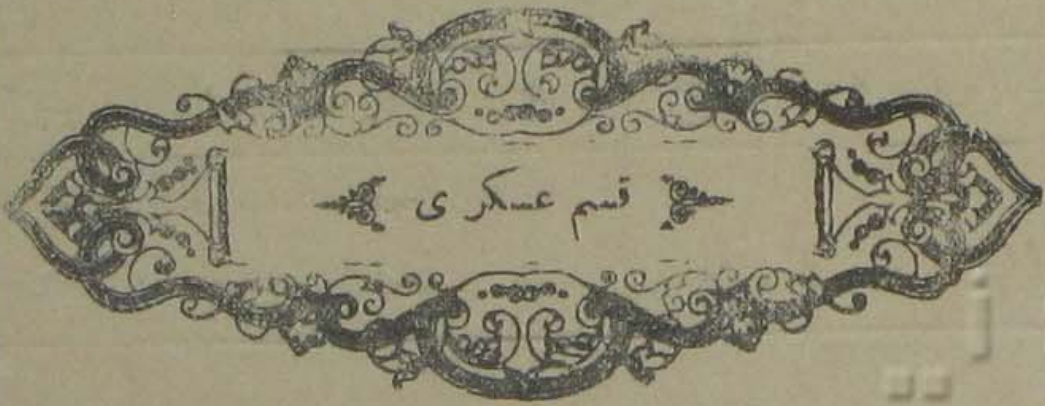 قسم عسكر ى